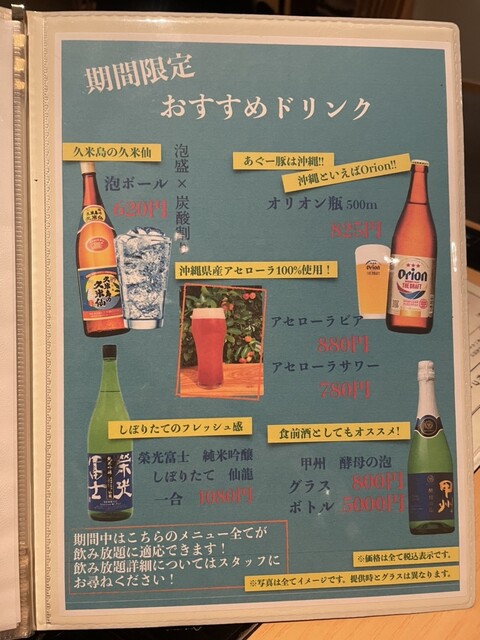 期間限定
おすすめドリンク
久米島の久米仙
泡ボール
620円
泡盛×炭酸割
あぐー豚は沖縄!!
沖縄といえばOrion!!
オリオン瓶 500m
825円
久米島の久米仙
Orion
Orion
THE DRAFT
沖縄県産アセローラ100%使用！
アセローラビア
880円
アセローラサワー
780円
しぼりたてのフレッシュ感
栄光富士 純米吟醸
しぼりたて 仙龍
一合 1080円
栄光
冨士
食前酒としてもオススメ!
甲州 酵母の泡
グラス 800円
ボトル 5000円
甲州
期間中はこちらのメニュー全てが
飲み放題に適応できます！
飲み放題詳細についてはスタッフに
お尋ねください！
※価格は全て税込表示です。
※写真は全てイメージです。提供時とグラスは異なります。